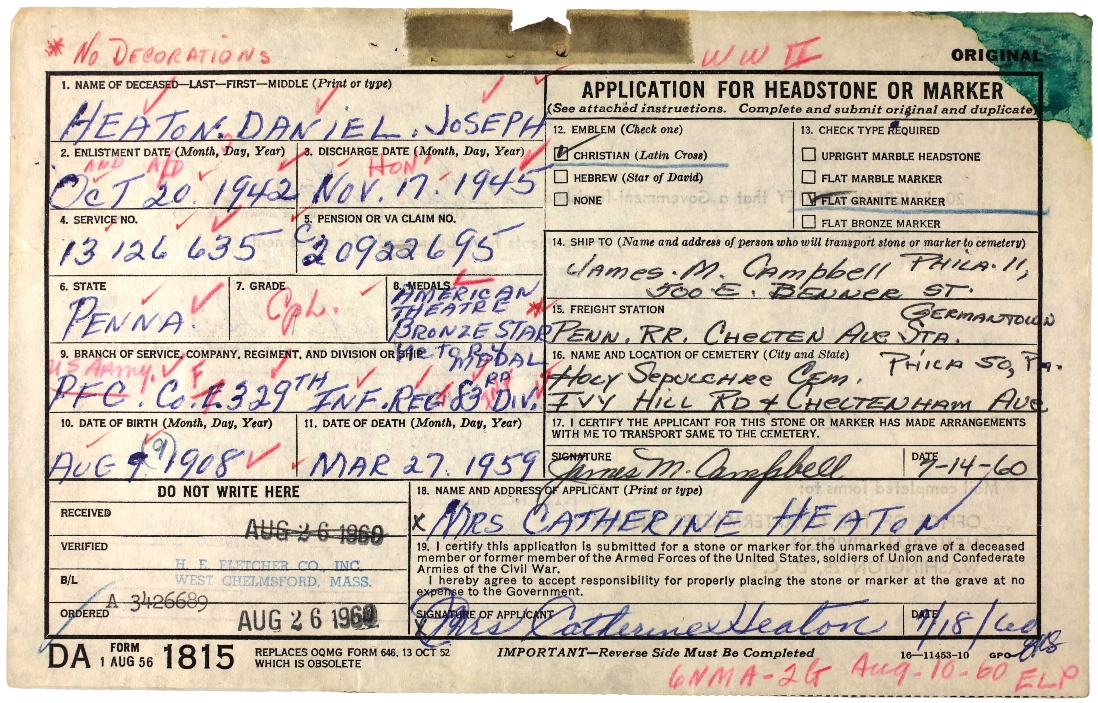 * NO DECORATIONS
WW II
ORIGINAL
1. NAME OF DECEASED—LAST—FIRST—MIDDLE (Print or type)
HEATON. DANIEL. JOSEPH
2. ENLISTMENT DATE (Month, Day, Year)
AND AD
OCT 20. 1942
3. DISCHARGE DATE (Month, Day, Year)
HON
NOV. 17. 1945
4. SERVICE NO.
13 126 635
5. PENSION OR VA CLAIM NO.
C 20922695
6. STATE
PENNA.
7. GRADE
Cpl.
8. MEDALS
AMERICAN
THEATRE
BRONZE STAR *
VICTORY
MEDAL
9. BRANCH OF SERVICE, COMPANY, REGIMENT, AND DIVISION OR SHIP
US Army F
PFC. Co. F. 329TH INF. REG 83 RD DIV.
10. DATE OF BIRTH (Month, Day, Year)
AUG 9 (9) 1908
11. DATE OF DEATH (Month, Day, Year)
MAR 27. 1959
APPLICATION FOR HEADSTONE OR MARKER
(See attached instructions. Complete and submit original and duplicate)
12. EMBLEM (Check one)
CHRISTIAN (Latin Cross)
HEBREW (Star of David)
NONE
13. CHECK TYPE REQUIRED
UPRIGHT MARBLE HEADSTONE
FLAT MARBLE MARKER
FLAT GRANITE MARKER
FLAT BRONZE MARKER
14. SHIP TO (Name and address of person who will transport stone or marker to cemetery)
James. M. Campbell PHILA. 11,
500 E. BENNER ST.
15. FREIGHT STATION
GERMANTOWN
PENN. RR. CHELTEN AVE STA.
16. NAME AND LOCATION OF CEMETERY (City and State)
PHILA 50, PA.
HOLY SEPULCHRE CEM.
IVY HILL RD & CHELTENHAM AVE
17. I CERTIFY THE APPLICANT FOR THIS STONE OR MARKER HAS MADE ARRANGEMENTS
WITH ME TO TRANSPORT SAME TO THE CEMETERY.
SIGNATURE
James M. Campbell
DATE
7-14-60
DO NOT WRITE HERE
RECEIVED
AUG 26 1960
VERIFIED
H. E. FLETCHER CO., INC.
WEST CHELMSFORD, MASS.
B/L
A 3426689
ORDERED
AUG 26 1960
18. NAME AND ADDRESS OF APPLICANT (Print or type)
X MRS CATHERINE HEATON
19. I certify this application is submitted for a stone or marker for the unmarked grave of a deceased
member or former member of the Armed Forces of the United States, soldiers of Union and Confederate
Armies of the Civil War.
I hereby agree to accept responsibility for properly placing the stone or marker at the grave at no
expense to the Government.
SIGNATURE OF APPLICANT
X Mrs Catherine Heaton
DATE
7/18/60
DA FORM 1 AUG 56 1815
REPLACES OQMG FORM 646, 13 OCT 52
WHICH IS OBSOLETE
IMPORTANT—Reverse Side Must Be Completed
16—11453-10 GPO
6NMA-2G Aug-10-60 ELP